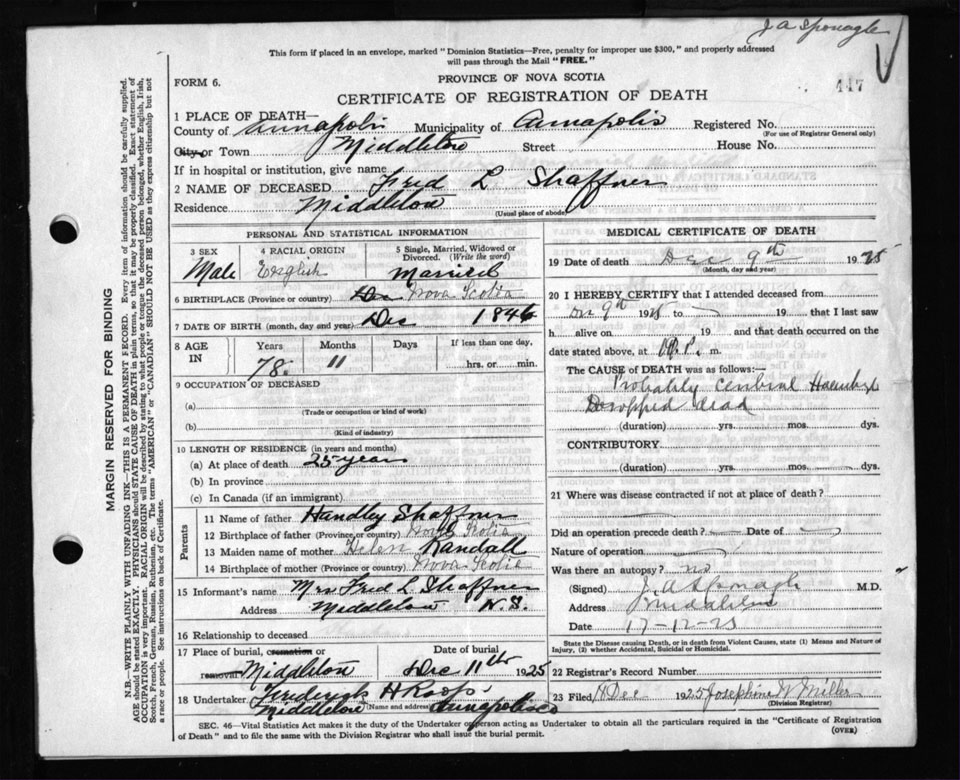 J A Sponagle
This form if placed in an envelope, marked "Dominion Statistics—Free, penalty for improper use $300," and properly addressed
will pass through the Mail "FREE."
FORM 6.
PROVINCE OF NOVA SCOTIA
447
CERTIFICATE OF REGISTRATION OF DEATH
1 PLACE OF DEATH—
County of Annapolis Municipality of Annapolis Registered No.
(For use of Registrar General only)
City or Town Middleton Street House No.
If in hospital or institution, give name
2 NAME OF DECEASED Fred L Shaffner
Residence Middleton
(Usual place of abode)
PERSONAL AND STATISTICAL INFORMATION
3 SEX Male
4 RACIAL ORIGIN English
5 Single, Married, Widowed or Divorced. (Write the word) Married
6 BIRTHPLACE (Province or country) Nova Scotia
7 DATE OF BIRTH (month, day and year) Dec 1846
8 AGE IN Years 78 Months 11 Days If less than one day, hrs. or min.
9 OCCUPATION OF DECEASED
(a)
(Trade or occupation or kind of work)
(b)
(Kind of industry)
10 LENGTH OF RESIDENCE (in years and months)
(a) At place of death 25 years
(b) In province
(c) In Canada (if an immigrant)
Parents
11 Name of father Handley Shaffner
12 Birthplace of father (Province or country) Nova Scotia
13 Maiden name of mother Helen Randall
14 Birthplace of mother (Province or country) Nova Scotia
15 Informant's name Mrs Fred L Shaffner
Address Middleton N.S.
16 Relationship to deceased
17 Place of burial, cremation or removal Middleton
Date of burial Dec 11th 1925
18 Undertaker Frederick H Roop
Middleton (Name and address) Annapolis Co
MEDICAL CERTIFICATE OF DEATH
19 Date of death Dec 9th 1925
(Month, day and year)
20 I HEREBY CERTIFY that I attended deceased from
Dec 9th 1925 to 19 that I last saw
h. alive on 19 and that death occurred on
date stated above, at m.
The CAUSE of DEATH was as follows:—
Probably cerebral
Dropped dead
(duration) yrs. mos. dys.
CONTRIBUTORY
(duration) yrs. mos. dys.
21 Where was disease contracted if not at place of death?
Did an operation precede death? Date of
Nature of operation
Was there an autopsy? no
(Signed) J. A Sponagle M.D.
Address Middleton
Date 17-12-25
State the Disease causing Death, or in death from Violent Causes, state (1) Means and Nature of
Injury, (2) whether Accidental, Suicidal or Homicidal.
22 Registrar's Record Number
23 Filed Dec 1925 Josephine W Miller
(Division Registrar)
SEC. 46—Vital Statistics Act makes it the duty of the Undertaker or person acting as Undertaker to obtain all the particulars required in the "Certificate of Registration
of Death" and to file the same with the Division Registrar who shall issue the burial permit.
(OVER)
MARGIN RESERVED FOR BINDING
N.B.—WRITE PLAINLY WITH UNFADING INK—THIS IS A PERMANENT RECORD. Every item of information should be carefully supplied.
AGE should be stated EXACTLY. PHYSICIANS should STATE CAUSE OF DEATH in plain terms, so that it may be properly classified. Exact statement of
OCCUPATION is very important. RACIAL ORIGIN will be described by stating what people or tongue the deceased person belonged, whether English, Irish,
Scotch, French, German, Russian, Ruthenian, etc. The terms "AMERICAN" or "CANADIAN" SHOULD NOT BE USED as they express citizenship but not
a race or people. See instructions on back of Certificate.